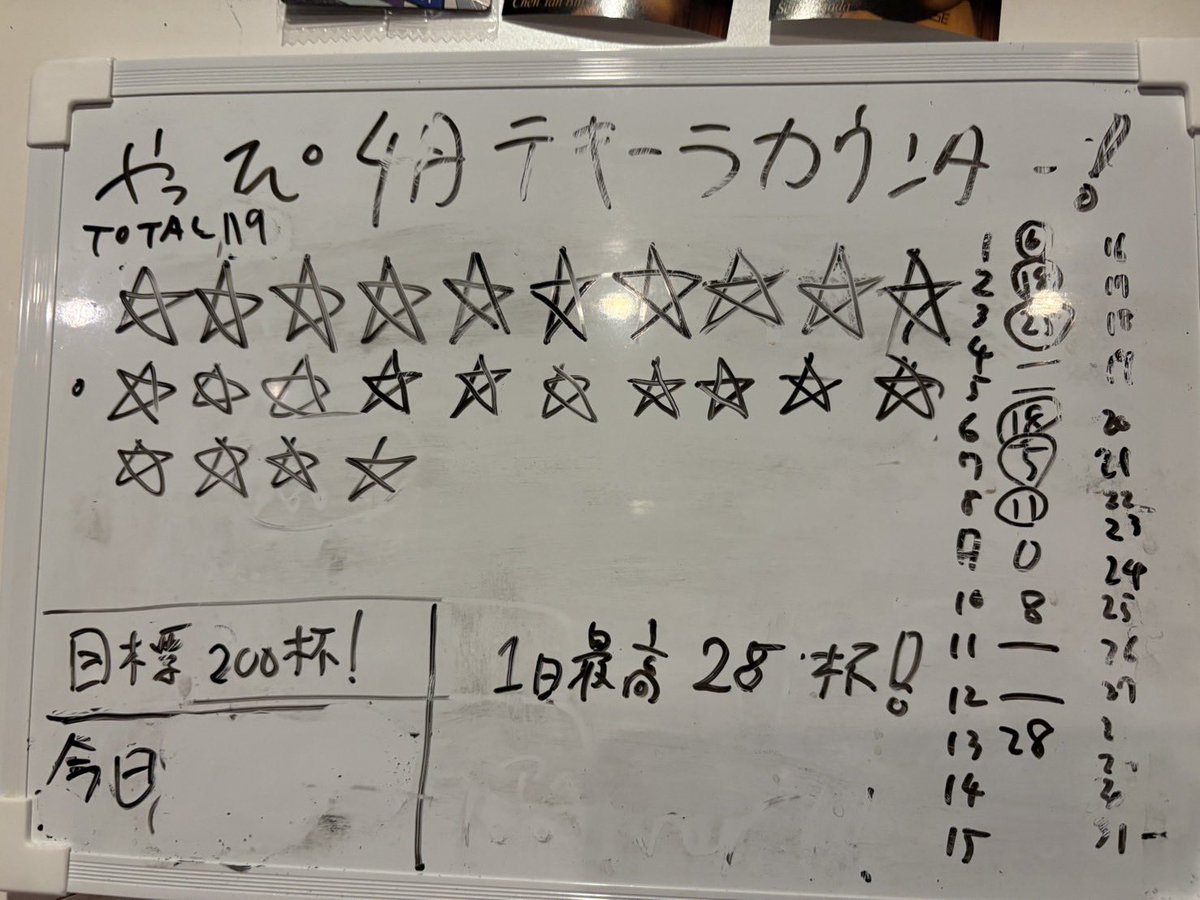 やっぴ 4月テキーラカウンター!
TOTAL 119
目標 200杯!
今日
1日最高 28 杯!
1 6
2
3 21
4 ー
5 ー
6 18
7 5
8 11
9 0
10 8
11 ー
12 ー
13 28
14
15
16
17
18
19
20
21
22
23
24
25
26
27
31 -